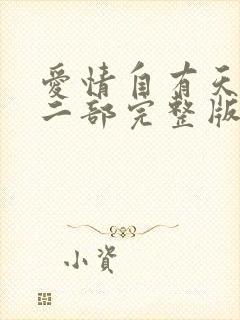 愛情自有天
二部完整版
小資